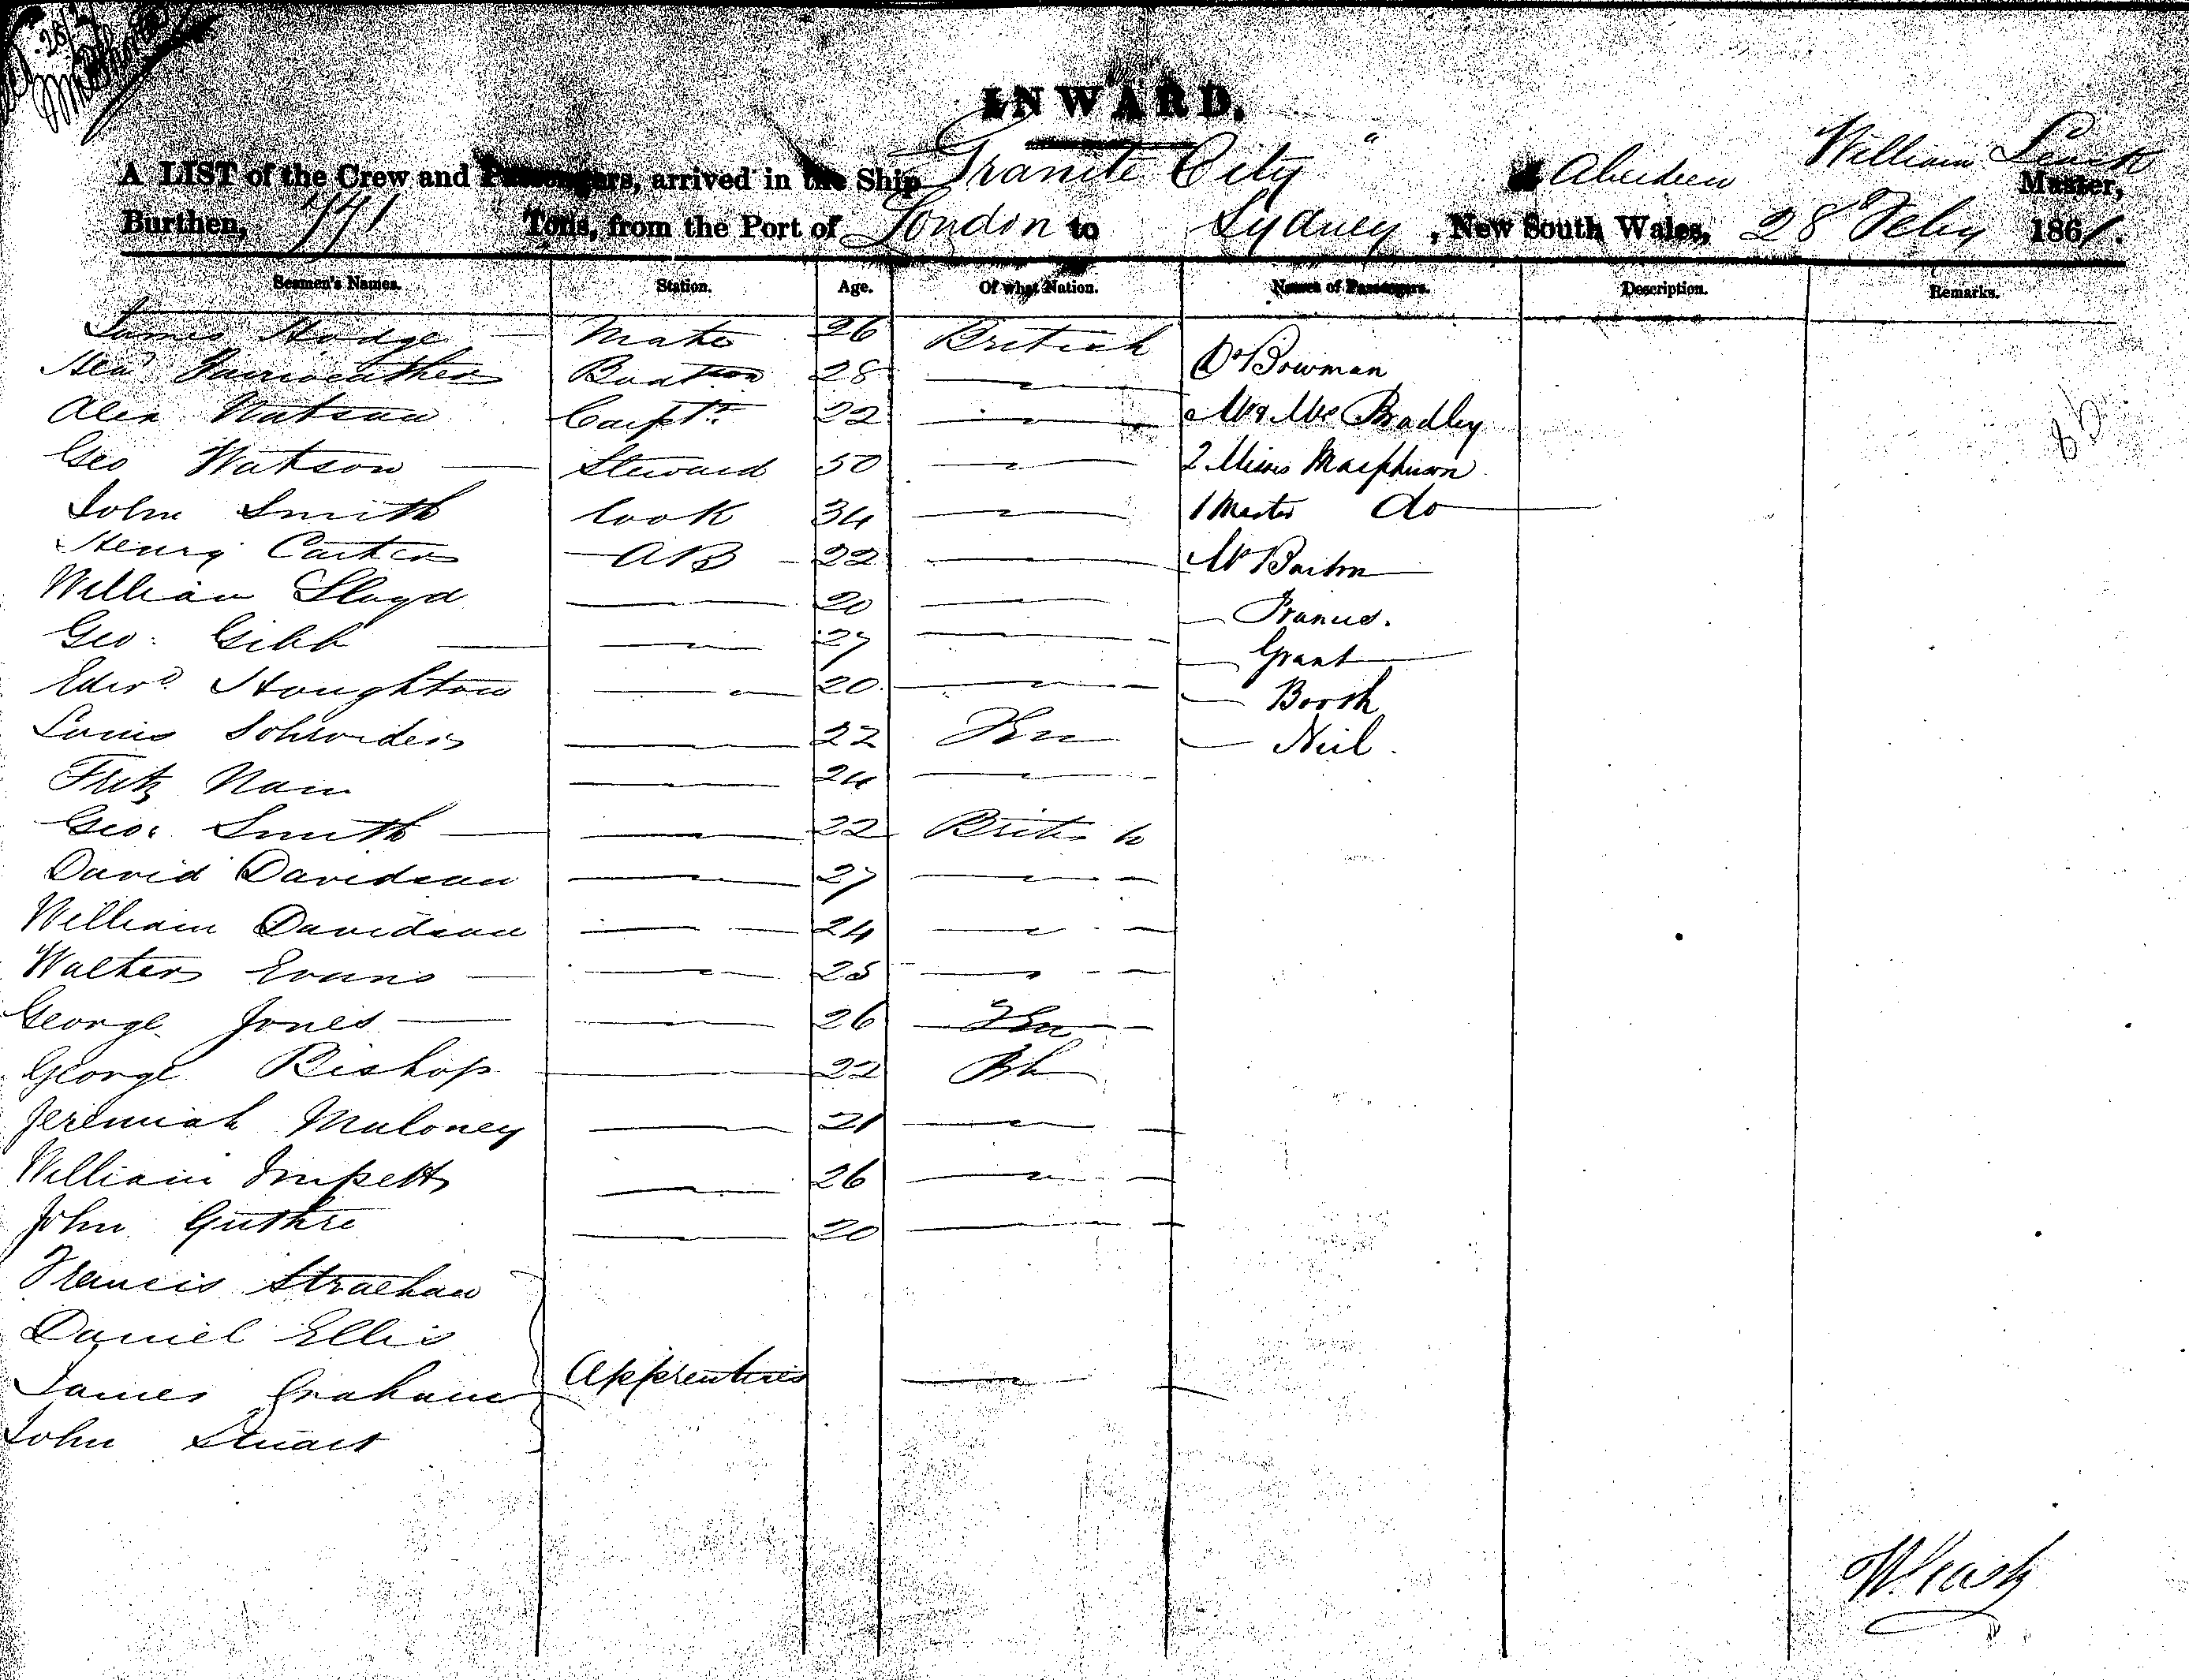 INWARD.
A LIST of the Crew and Passengers, arrived in the Ship "Granite City" of Aberdeen William Leask Master,
Burthen, 771 Tons, from the Port of London to Sydney, New South Wales, 28 Feby 1861.
Seamen's Names. Station. Age. Of what Nation. Names of Passengers. Description. Remarks.
James Hodge Mate 26 British
Dr Bowman
Fairweather 28
Alex Watson Carptr 22
Mr & Mrs Bradley
Geo Watson Steward 50
2 Misses Macpherson
John Smith Cook 34
1 Master do
Henry Carter AB 22
Mr Barton
William Lloyd 20
Francis.
Geo. Gibb 27
Grant
Edwd. Houghton 20
Booth
Louis Schroder 22
Neil.
Fritz Nam 24
Geo. Smith 22 British
David Davidson 27
William Davidson 24
Walter Evans 25
George Jones 26
George Bishop 22 Bh
Jeremiah Maloney 21
William Impett 26
John Guthre 20
Francis Strachan
Daniel Ellis
Apprentices
James Graham
John Stuart
W Leask